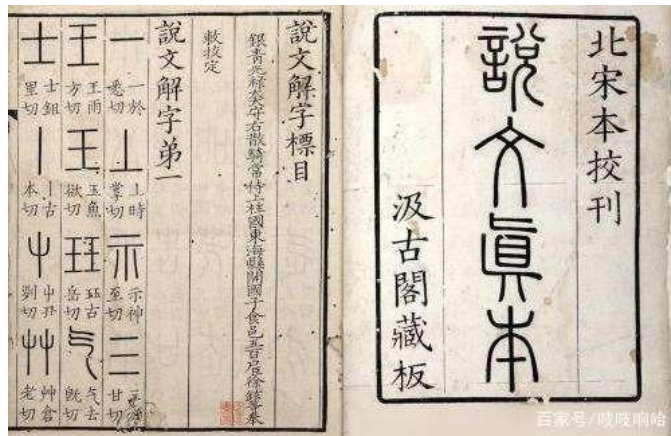 北宋本挍刊
說文眞本
汲古閣藏板
說文解字標目
銀青光祿大夫守右散騎常侍上柱國東海縣開國子食邑五百戶徐鉉等奉
敕挍定
說文解字弟一
一 一於悉切 丄 丄時掌切 示 示神至切 三 三 甘切
王 王雨方切 王 玉魚欲切 玨 玨古岳切 气 气去旣切
士 士鉏里切 丨 丨古本切 屮 屮丑列切 艸 艸倉老切
百家号/吱吱响哈